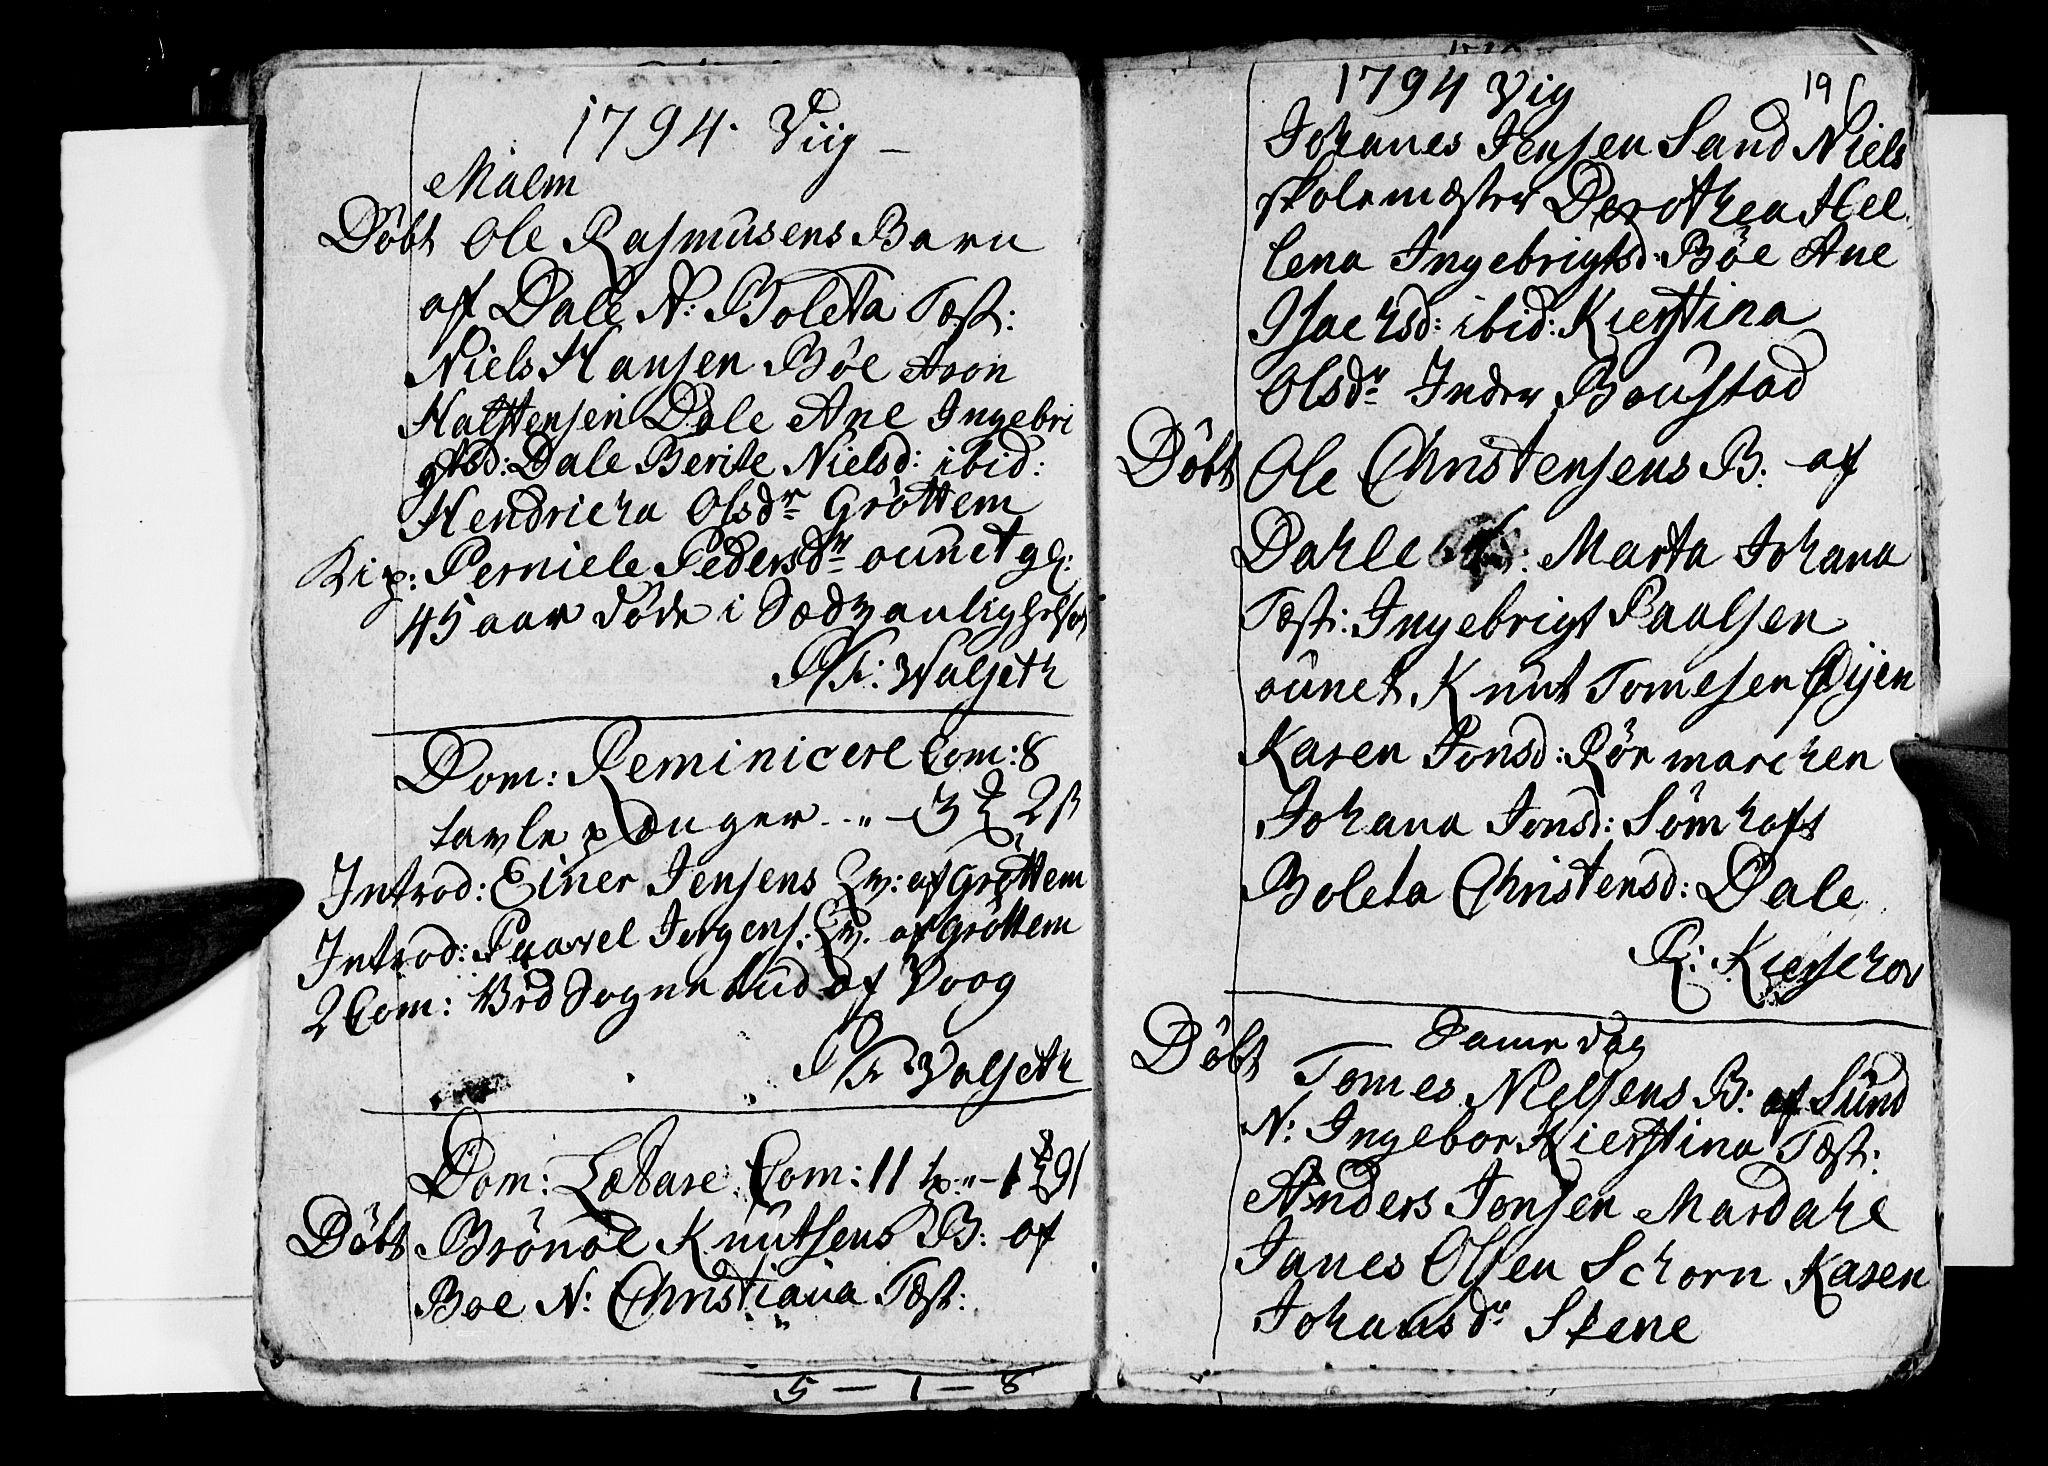 1794. Viig –
Malm
Döbt Ole Rasmusens Barn
af Dale N: Boleta Tæst:
Niels Hansen Böe Aron
Halstensen Dale Ane Ingebri
gtsd: Dale Berite Nielsd: ibid:
Hendricha Olsdr Gröttem
Perniele Pedersdr ounet gl:
45 aar döde i Sædvanlighed
Walseth
Dom: Reminicere Com: 8
tavle penger 3 2 ß
Introd: Einer Jensens Qv: af Gröttem
Introd: Paavel Jorgens: Qv. af Gröttem
2 Com: Bröd Sogne bud af Voog
Walseth
Dom: Lætare Com: 11
Döbt Brönöl Knutsens B: af
Boe N: Christiana Tæst:
5 – 1 – 8
1794 Vig 196
Johanes Jensen Sand Niels
skolemæster Dorothea Hel
lena Ingebrigtsd: Böe Ane
Isachsd: ibid: Kierstina
Olsdr Inder Boustad
Döbt Ole Christensens B. af
Dahle N: Marta Johana
Tæst: Ingebrigt Paalsen
ounet Knut Tomesen Öijen
Karen Jonsd: Rör marchen
Johana Jonsd: Sömhoft
Boleta Christensd: Dale
R: Kierschov
Same dag
Döbt Tomes Nielsens B: af Sund
N: Ingebor Kierstina Tæst:
Anders Jonsen Mardahl
Janes Olsen Schorn Karen
Johansdr Skene